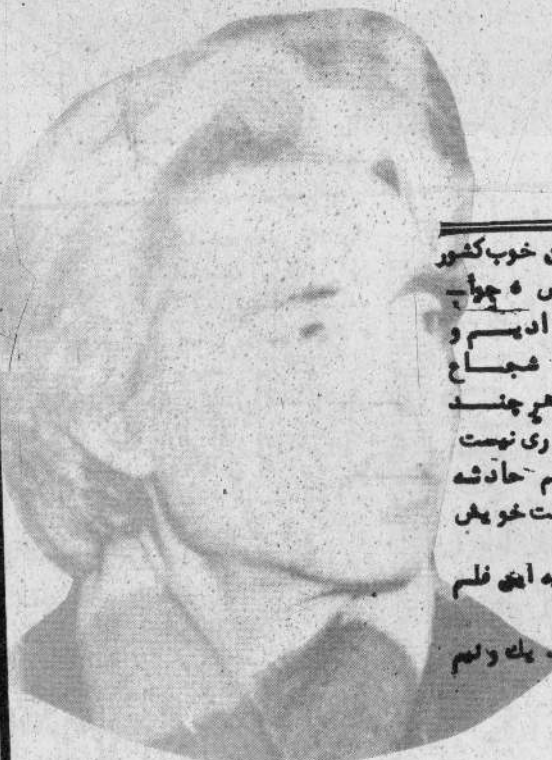 خوب کشور
جواب
ادیسم و
شجاع
هر چند
ری نیست
م حادثه
ت خویش
ه این فلم
یک و نیم